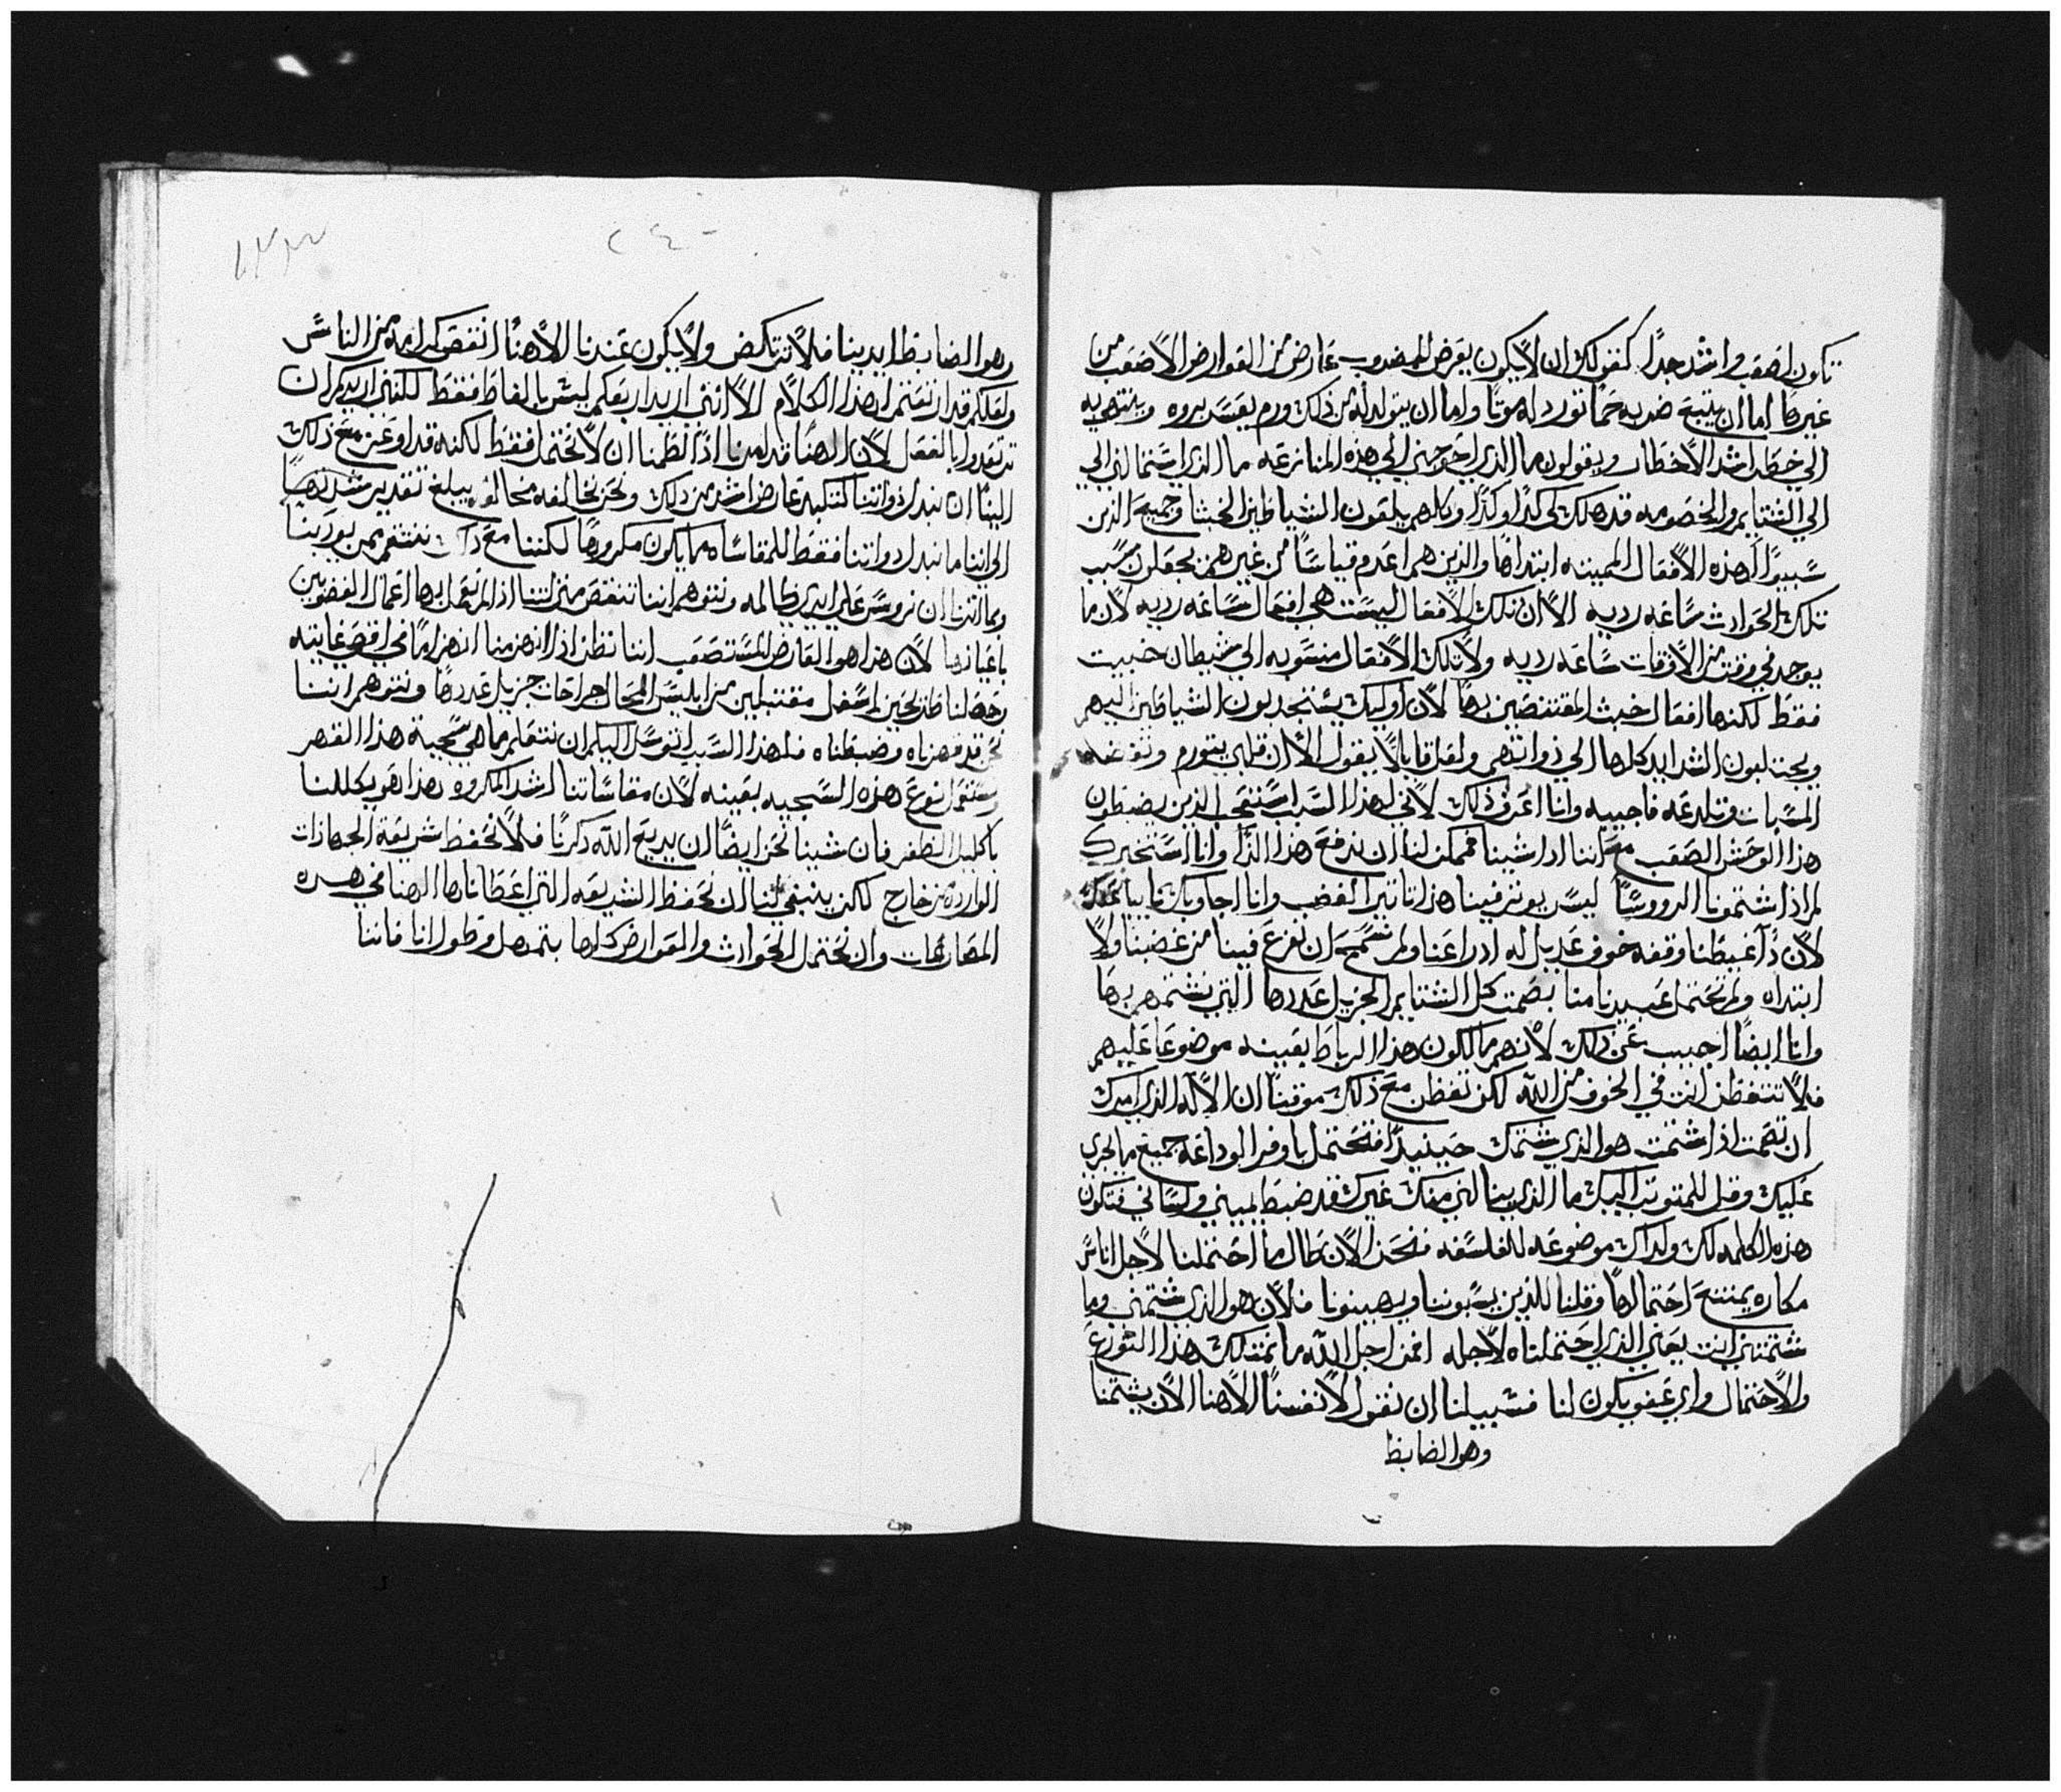 تكون اصعب واشد جدًا كقولك ان لا يكون يعرض للمضروب عارض من العوارض الاصعب من
غيرها اما ان يتبع ضربه حما تورد له موتا واما ان يتولد له من ذلك ورم يعسر بروه وينتهي به
الي خطر اشد الاخطار ويقولون ما الذي احوجني الي هذه المنازعه ما الذي استمالني الي
الي الشتايم والخصومه قد هلك لي كذا وكذا وكلهم يلعنون الشياطين الخبثا وجميع الذين
سببوا لهذه الافعال المهينه ابتداها والذين هم اعدم قياسًا من غيرهم يجعلون سبب
تلك الحوادث ساعه رديه الا ان تلك الافعال ليست هي افعال ساعه رديه لان ما
يوجد في وقت من الاوقات ساعه رديه ولا تلك الافعال منسوبه الي شيطان خبيث
فقط لكنها افعال خبث المقتنصين بها لان اوليك يستجدبون الشياطين اليهم
ويجتلبون الشدايد كلها الي ذواتهم ولعل قايلا يقول الا ان قلبي يتورم
المسبات وتلدعه فاجيبه وانا اعرف ذلك لاني لهذا السبب استعجب الذين يضبطون
هذا الوحش الصعب مع اننا اذا شينا فممكن لنا ان ندفع هذا الدا وانا استخبرك
لم اذا شتمونا الروسا ليس يوثر فينا هذا تاثير الغضب وانا اجاوبك نايبا عنك
لان ذا غيظنا وقفه خوف عديل له اذ راعنا ولم نسمح ان نفزع فينا من غضبنا ولا
ابتداه ولم تحتمل عبيدنا منا بصمت كل الشتايم الجزيل عددها التي نشتمهم بها
وانا ايضًا اجيب عن ذلك لانهم مالكون هذا الرباط بعينه موضوعا عليهم
فلا تتفطن انت في الخوف من الله لكن تفطن مع ذلك موقنا ان الاله الذي امرك
ان تصمت اذا شتمت هو الذي شتمك حينيذ فتحتمل باوفر الوداعه جميع ما يجري
عليك وقل للمتوتب اليك ما الذي ينالني منك غيرك قد ضبط يميني ولساني فتكون
هذه الكلمه لك ولذاك موضوعه للفلسفه فنحن الان طال ما احتملنا لاجل اناس
مكاره يمتنع احتمالها وقلنا للذين يسبوننا ويهينونا فلان هو الذي شتمني وما
شتمتني انت يعني الذي احتملناه لاجله افمن اجل الله ما نمتلك هذا التورع
والاحتمال واي عفو يكون لنا فسبيلنا ان نقول لانفسنا الاهنا الان يشتمنا
وهو الضابط
٢٤٠
وهو الضابط ايدينا فلا نرتكض ولا يكون عندنا الاهنا انقص كرامه من الناس
ولعلكم قد ارتعتم لهذا الكلام الا انني اريد ارتعكم ليس بالفاظ فقط لكنني اريدكم ان
ترتعدوا بالفعل لان الهنا قد امرنا اذا لطمنا ان لا نحتمل فقط لكنه قد اوعز مع ذلك
الينا ان نبدل ذواتنا لتكبد عارض اشد من ذلك ونحن نخالفه مخالفه يبلغ تقدير شدتها
الي اننا ما نبدل ذواتنا فقط للمقاساه مما يكون مكروها لكننا مع ذلك ننتقم ممن يوذينا
وبما اثرنا ان نروس علي ايدي ظالمه ونتوهم اننا ننقص منزلتنا اذا لم نعمل بها اعمال المغضوبين
باعيانها لان هذا هو العارض المستصعب اننا نظن اذا انهزمنا انهزامًا في اقصي غايته
وحصلنا طريحين اسفل مقتبلين من ابليس المحال جراحات جزيل عددها ونتوهم اننا
نحن قد قهرناه وضبطناه فلهذا السبب اتوسل اليكم ان نتعلم ما هي سجية هذا القهر
ونستعمل نوع هذه السجيه بعينه لان مقاساتنا اشد المكروه هذا هو يكللنا
باكليل الظفر فان شينا نحن ايضًا ان يديع الله ذكرنا فلا نحفظ شريعة الجهازات
الوارده من خارج لكن ينبغي لنا ان نحفظ الشريعه التي اعطاناها الهنا في هذه
المصارعات وان نحتمل الحوادث والعوارض كلها بتمهل وطول اناه فاننا